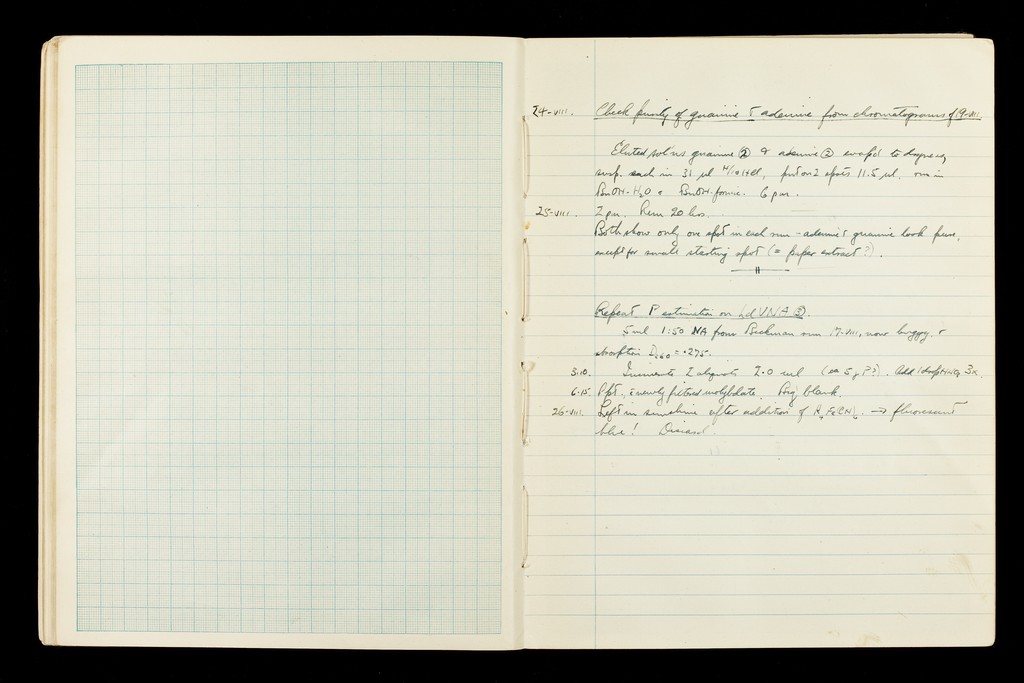 24-VIII. Check purity of guanine & adenine from chromatograms of 19-VIII.
Eluted sol'ns guanine ② & adenine ② evap'd to dryness,
susp. each in 31 µl N/10 HCl, put on 2 spots 11.5 µl, run in
BuOH-H2O & BuOH-formic. 6 pm.
25-VIII. 2 pm. Rem 20 hrs.
Both show only one spot in each run - adenine & guanine look pure,
except for small starting spot (= paper extract?).
Repeat P estimation on ③.
5 ml 1:50 NA from Beckman run 17-VIII, now buggy, &
absorption D260 = .275.
3.10. Incinerate 2 aliquots 2.0 ml (ca 5 γ P?). Add 1 drop HNO3 3x.
6.15. P pt., c newly filtered molybdate. Big blank.
26-VIII. Left in sunshine after addition of K4FeCN6. → fluorescent
blue! Discard.